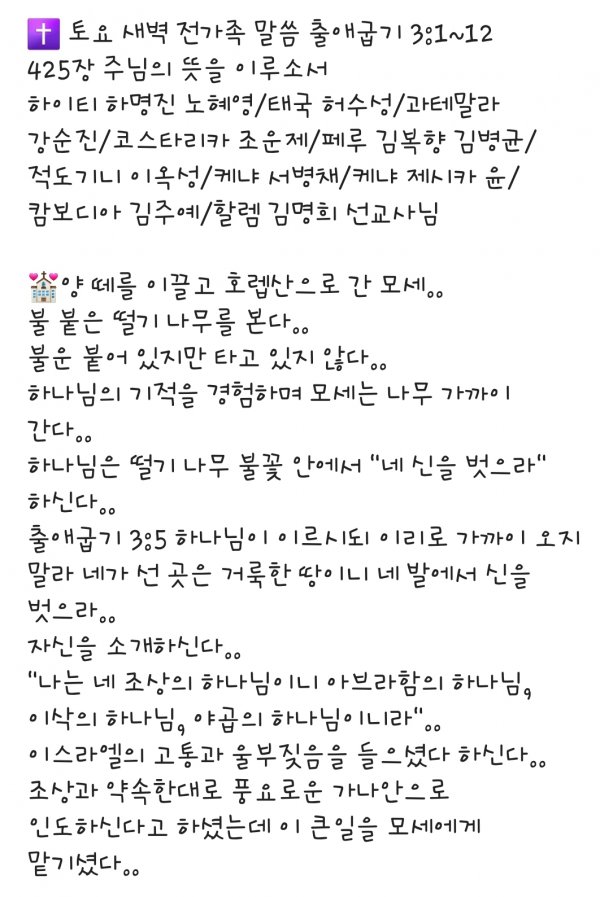 ✝️ 토요 새벽 전가족 말씀 출애굽기 3:1~12
425장 주님의 뜻을 이루소서
하이티 하명진 노혜영/태국 허수성/과테말라
강순진/코스타리카 조운제/페루 김복향 김병균/
적도기니 이옥성/케냐 서병채/케냐 제시카 윤/
캄보디아 김주예/할렘 김명희 선교사님
💒양 떼를 이끌고 호렙산으로 간 모세..
불 붙은 떨기 나무를 본다..
불운 붙어 있지만 타고 있지 않다..
하나님의 기적을 경험하며 모세는 나무 가까이
간다..
하나님은 떨기 나무 불꽃 안에서 "네 신을 벗으라"
하신다..
출애굽기 3:5 하나님이 이르시되 이리로 가까이 오지
말라 네가 선 곳은 거룩한 땅이니 네 발에서 신을
벗으라..
자신을 소개하신다..
"나는 네 조상의 하나님이니 아브라함의 하나님,
이삭의 하나님, 야곱의 하나님이니라"..
이스라엘의 고통과 울부짖음을 들으셨다 하신다..
조상과 약속한대로 풍요로운 가나안으로
인도하신다고 하셨는데 이 큰일을 모세에게
맡기셨다..